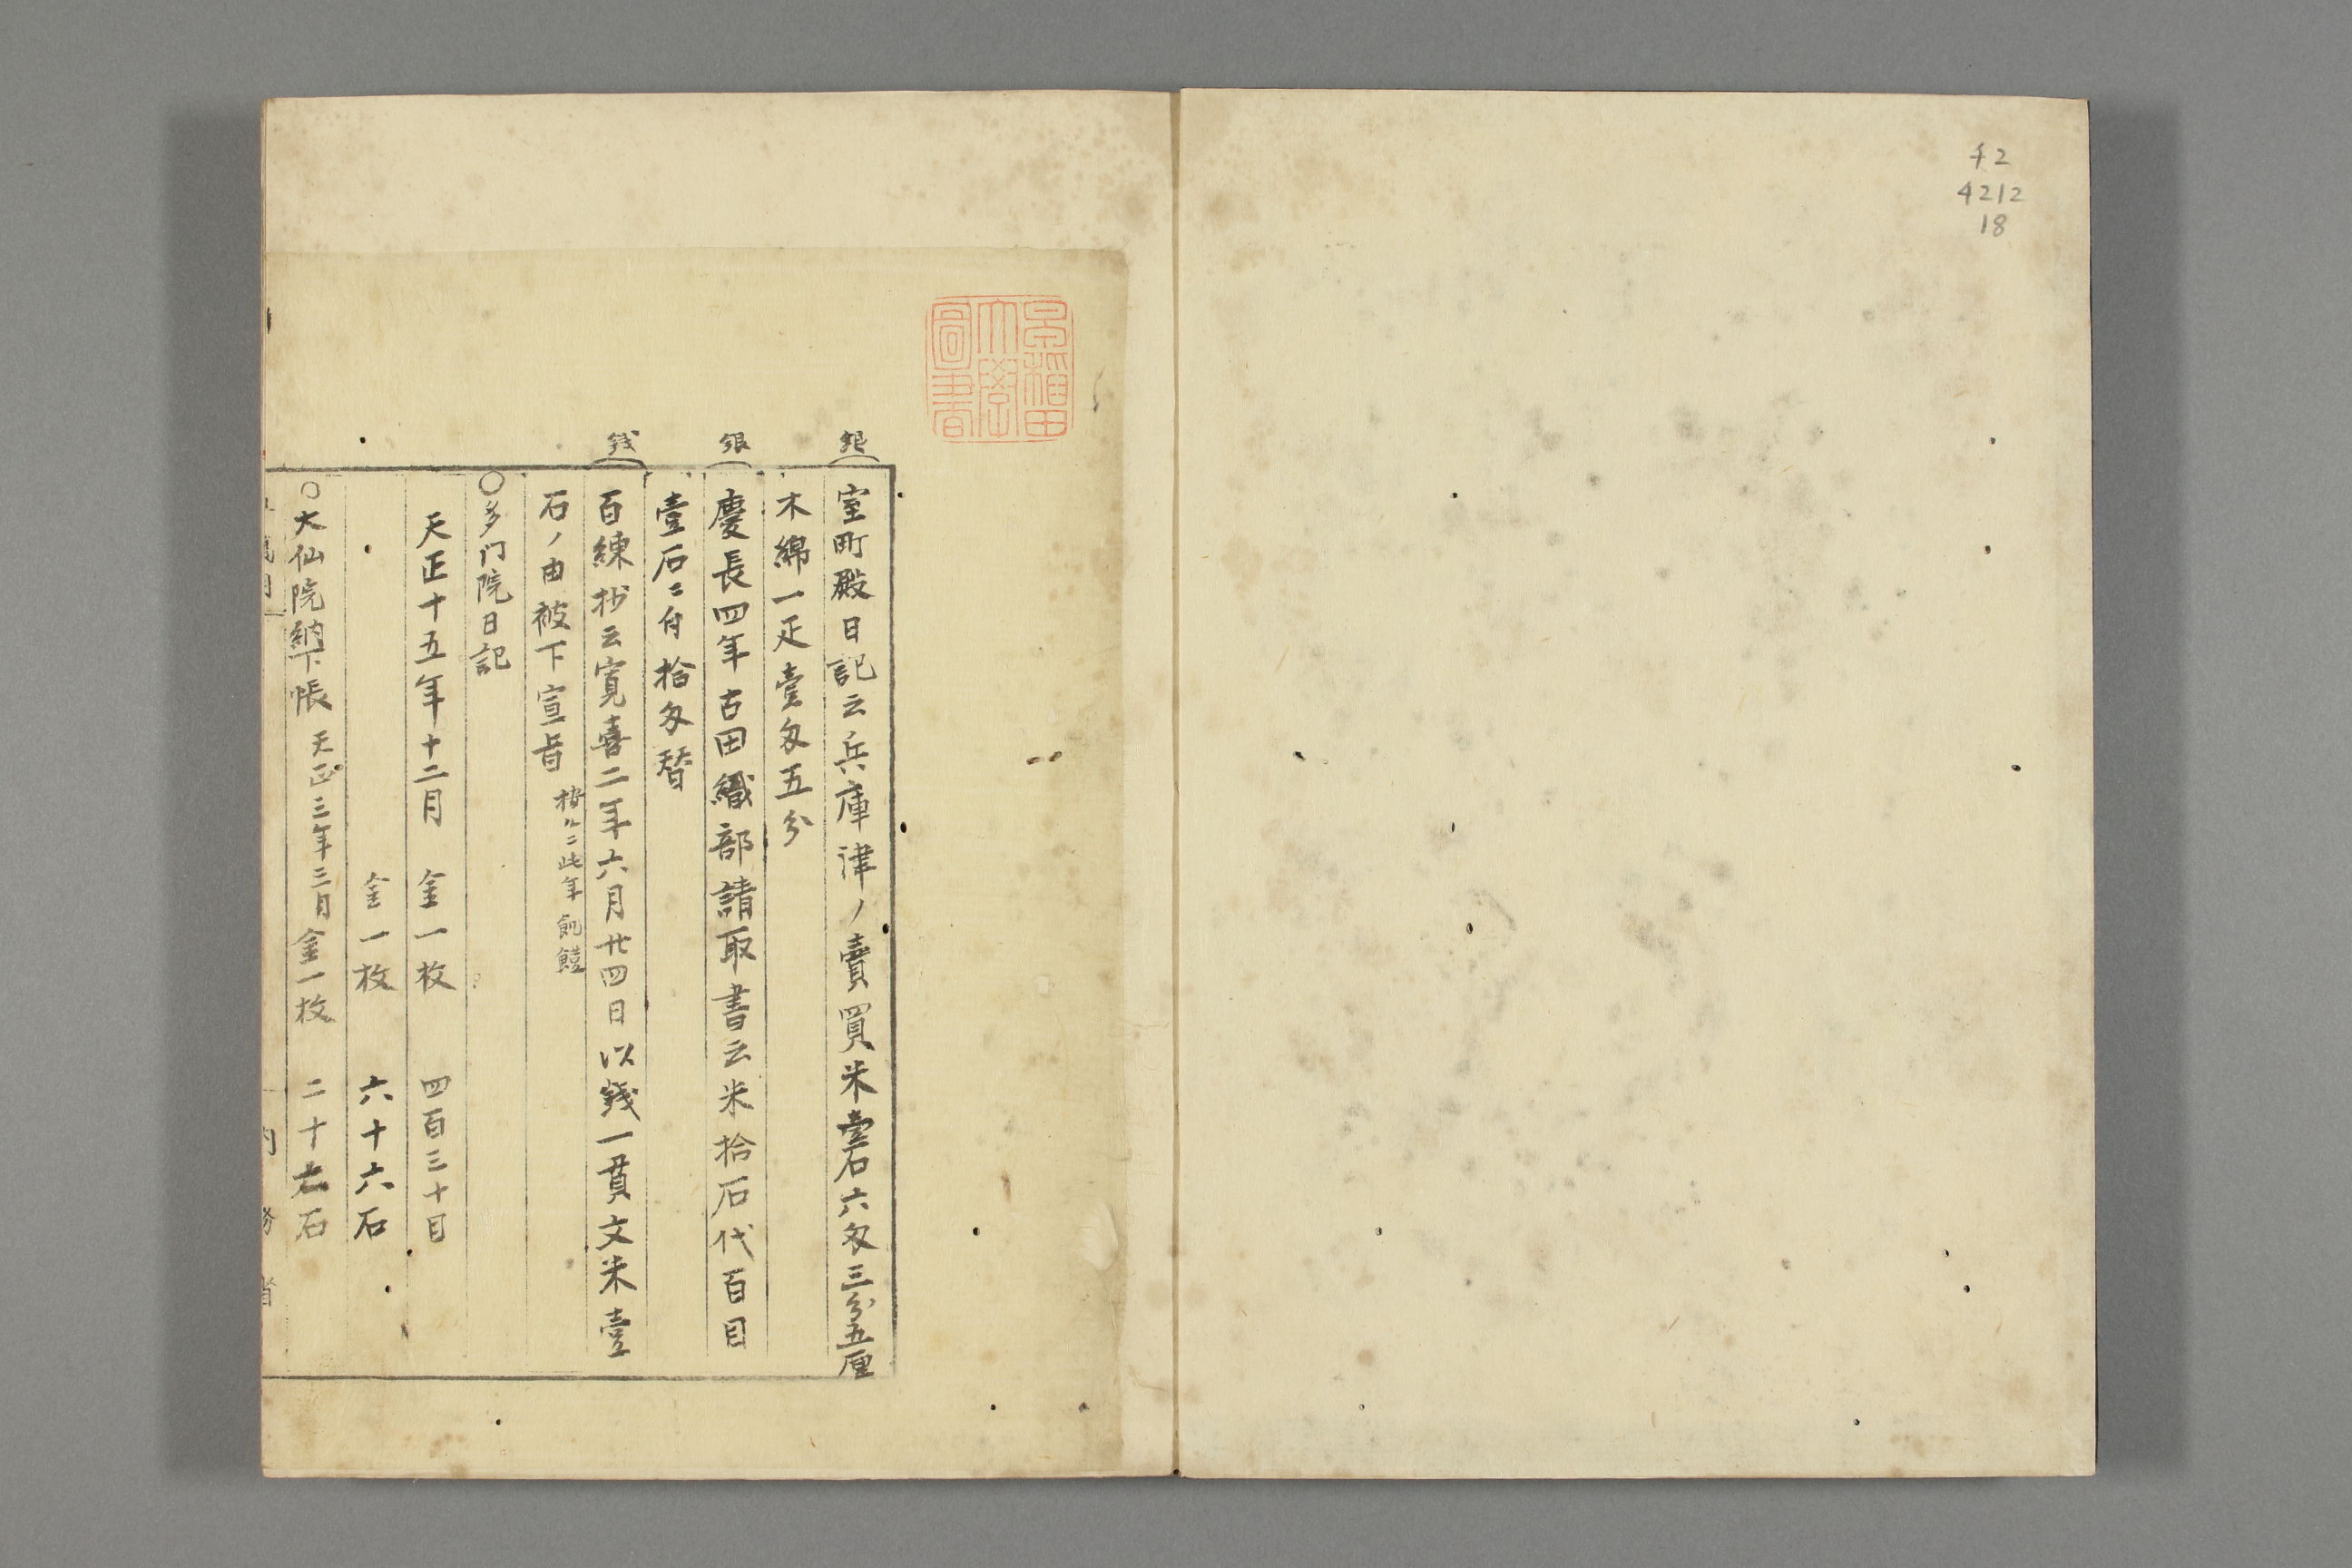 チ2
4212
18
早稲田
大學
圖書
銀
室町殿日記云兵庫津ノ賣買米壹石六匁三分五厘
木綿一疋壹匁五分
銀
慶長四年古田織部請取書云米拾石代百目
壹石ニ付拾匁替
錢
百練抄云寛喜二年六月廿四日以錢一貫文米壹
石ノ由被下宣旨 按ルニ此年飢饉
○多门院日記
天正十五年十二月 金一枚 四百三十目
金一枚 六十六石
○大仙院納下帳 天正三年三月 金一枚 二十石
内務省